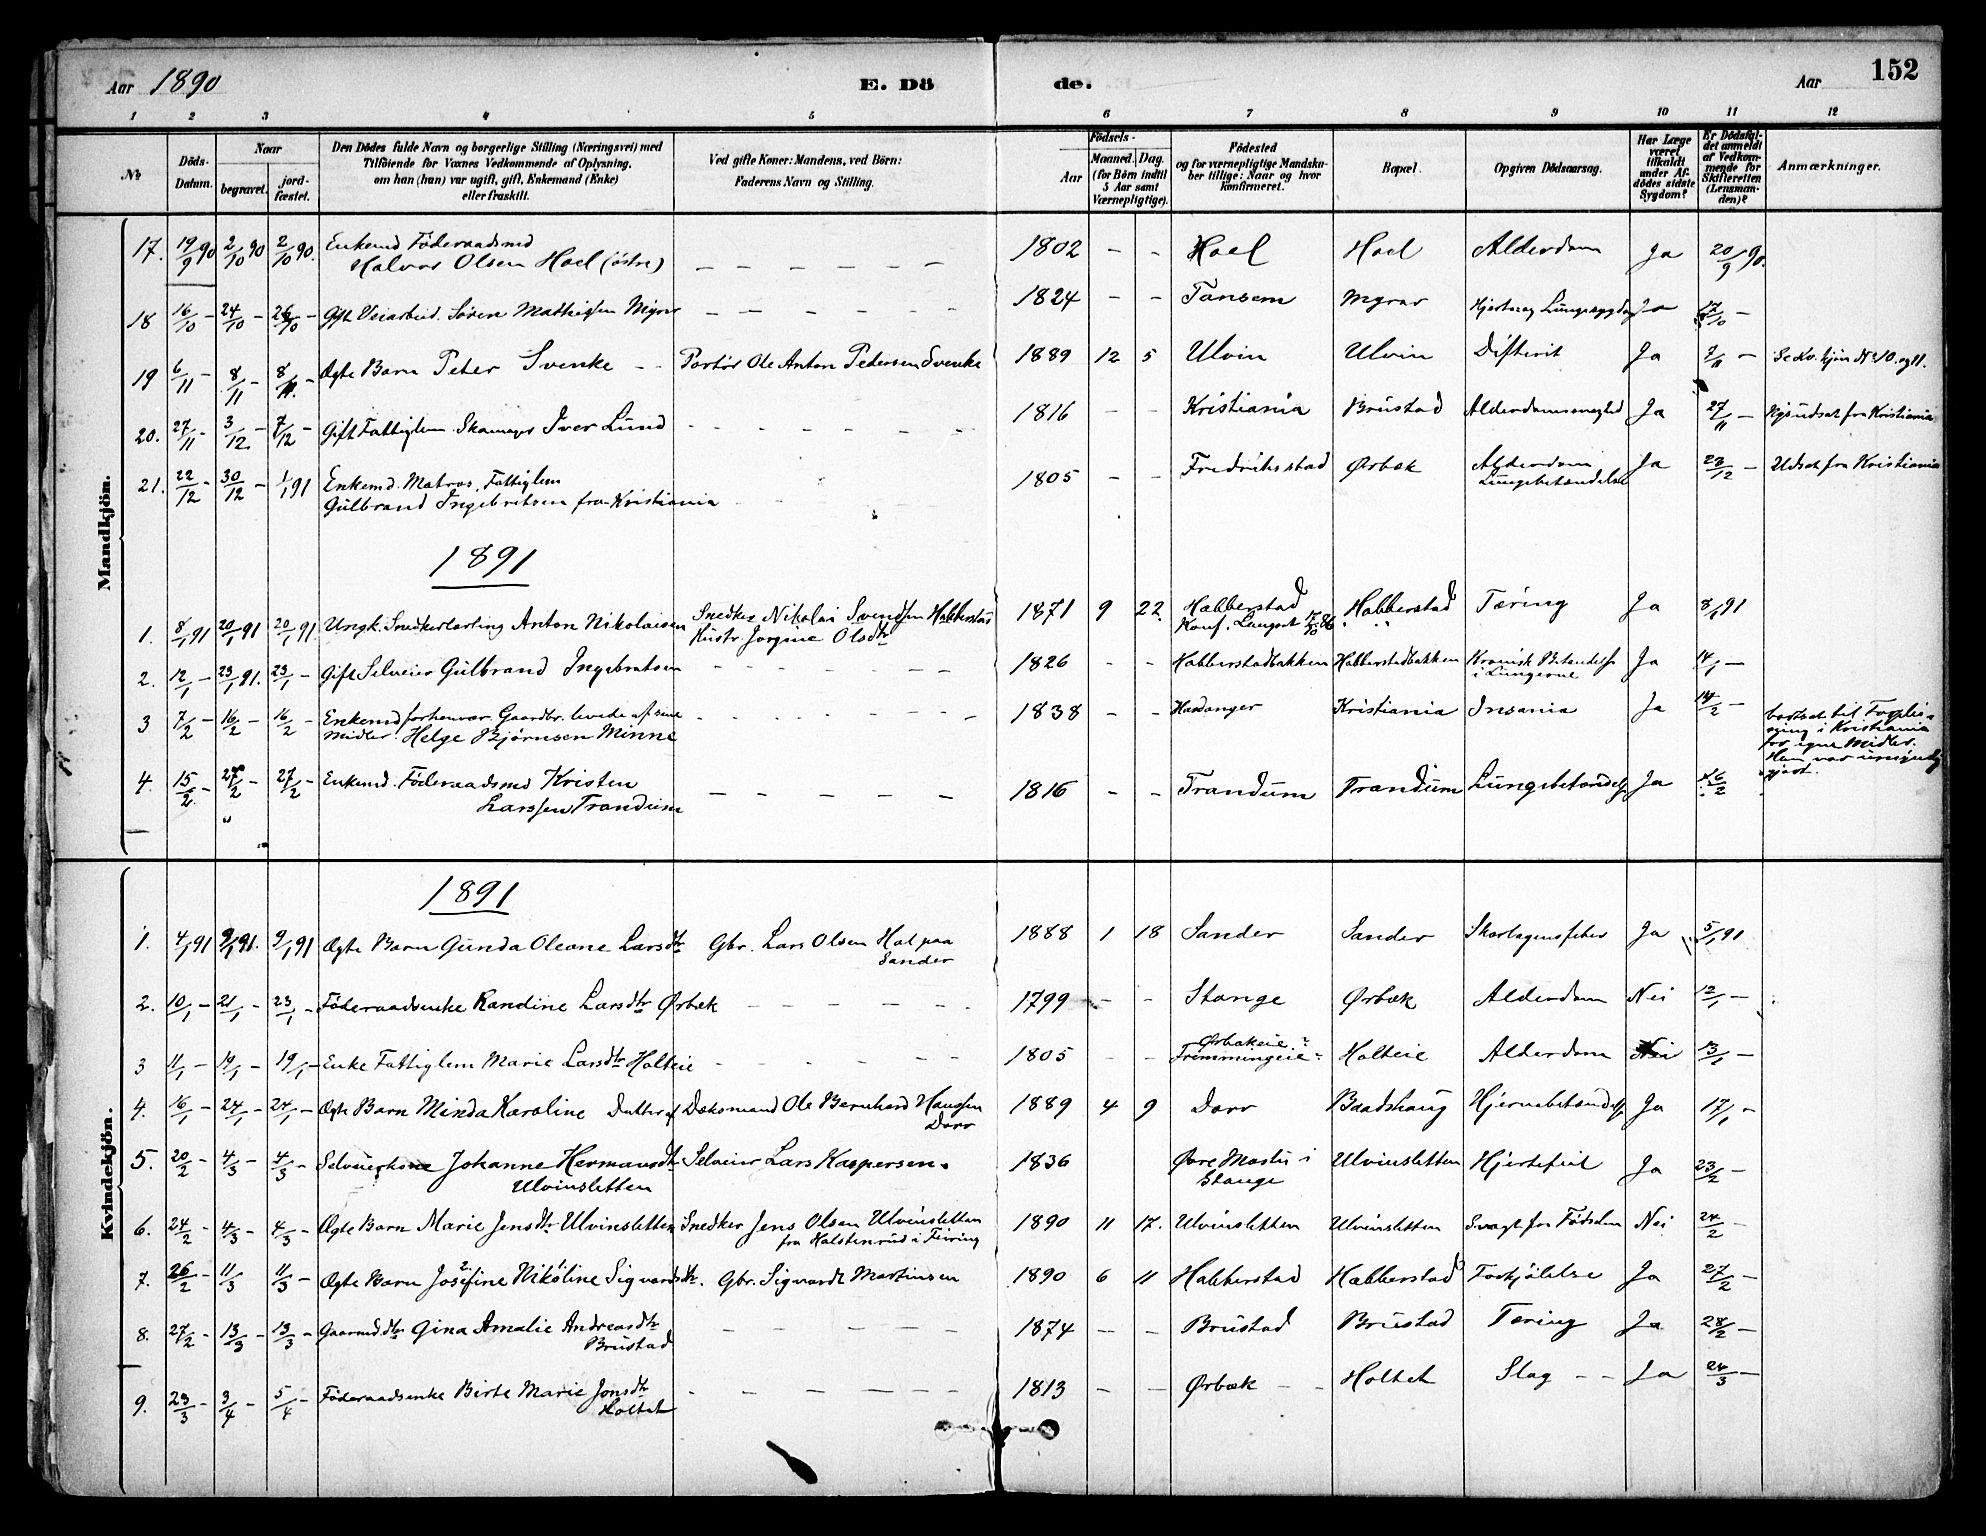 Aar 1890 E. Dö de. Aar 152
1 2 3 4 5 6 7 8 9 10 11 12
No
Döds-Datum.
Naar
begravet.
jord-fæstet.
Den Dödes fulde Navn og borgerlige Stilling (Næringsvei) med
Tilföiende for Voxnes Vedkommende af Oplysning,
om han (hun) var ugift, gift, Enkemand (Enke)
eller fraskilt.
Ved gifte Koner: Mandens, ved Börn:
Faderens Navn og Stilling.
Födsels-
Aar
Maaned. Dag.
(for Börn indtil
5 Aar samt
Værnepligtige).
Födested
og for værnepligtige Mandska-
ber tillige: Naar og hvor
konfirmeret.
Bopæl.
Opgiven Dödsaarsag.
Har Læge
været
tilkaldt
under Af-
dödes sidste
Sygdom?
Er Dödsfal-
det anmeldt
af Vedkom-
mende for
Skifteretten
(Lensman-
den)?
Anmærkninger.
Mandkjön.
17. 19/9 90 2/10 90 2/10 90. Enkemd Föderaadsmd
Halvor Olsen Hoel (östre) — — — — — — 1802 — — Hoel Hoel Alderdom Ja 20/9 90.
18 16/10 — 24/10 — 26/10 — Gift Veiarbeid. Sören Mathissen Myrer — — — — — — 1824 — — Tansem Myrer Hjerte og Lungesygdom Ja 17/10 —
19 6/11 — 8/11 — 8/11 — Ægte Barn Peter Svenke — — Portör Ole Anton Pedersen Svenke 1889 12 5 Ulvin Ulvin Difterit Ja 7/11 — Se Kv.kjön No 10 og 11.
20. 27/11 — 3/12 — 7/12 — Gift Fattiglem Skomager Iver Lund — — — — — — 1816 — — Kristiania Brustad Alderdomssvaghed Ja 27/11 — udsat fra Kristiania
21. 22/12 — 30/12 — 1/1 91 Enkemd. Matros, Fattiglem
Gulbrand Ingebretsen fra Kristiania 1805 — — Fredriksstad Ørbæk Alderdom
Lungebetændelse Ja 23/12 — Udsat fra Kristiania
1891
1. 8/1 91 20/1 91 20/1 91 Ungk. Snedkerlærling Anton Nikolaisen Snedker Nikolai Svendsen Habberstad
Hustr. Jorgine Olsdtr 1871 9 22 Habberstad
Konf. Langset 86 Habberstad Tæring Ja 8/1 91
2. 12/1 — 23/1 91. 23/1 — Gift Selveier Gulbrand Ingebretsen — — — — — 1826 — — Habberstadbakken Habberstadbakken Kronisk Betændelse
i Lungerne Ja 14/1 —
3 7/2 — 16/2 — 16/2 — Enkemd forhenvær. Gaardbr. levede af sine
Midler. Helge Bjørnsen Minne — — — — — — 1838 — — Hardanger Kristiania Insania Ja 14/2 — bortsat til Forplei-
ning i Kristiania
for egne Midler.
Han var
gjort.
4. 15/2 27/2 — 27/2 — Enkemd. Föderaadsmd Kristen
Larssen Trandum — — — — — — 1816 — — Trandum Trandum Lungebetændelse Ja 16/2
Kvindekjön.
1891
1. 4/1 91 9/1 91. 9/1 91 Ægte Barn Gunda Oleane Larsdtr Gbr. Lars Olsen Hol paa
Sander 1888 1 18 Sander Sander Skarlagensfeber Ja 5/1 91
2. 10/1 — 21/1 — 23/1 — Föderaadsenke Randine Larsdtr Ørbæk — — — — — 1799 — — Stange Ørbæk Alderdom Nei 12/1 —
3 11/1 — 19/1 — 19/1 — Enke Fattiglem Marie Larsdtr Holteie — — — — — 1805 — — Ørbækeie
Fremmingeie Holteie Alderdom Nei 13/1 —
4. 16/1 — 24/1 — 24/1 — Ægte Barn Minda Karoline Datter af Dæksmand Ole Bernhard Hanssen
Dorr 1889 4 9 Dorr Baadshaug Hjernebetændelse Ja 17/1 —
5. 20/2 — 4/3 — 4/3 — Selveierkone Johanne Hermansdtr
Ulvinsletten Selveier Lars Kaspersen. 1836 Øvre Mostu i
Stange Ulvinsletten Hjertefeil Ja 23/2 —
6. 24/2 — 4/3 — 4/3 — Ægte Barn Marie Jensdtr Ulvinsletten Snedker Jens Olsen Ulvinsletten
fra Holstenrud i Feiring 1890 11 17. Ulvinsletten Ulvinsletten Svag fra Födselen Nei 24/2 —
7. 26/2 — 11/3 11/3 — Ægte Barn Josefine Nikoline Sigvardsdtr. Gbr. Sigvardt Martinsen 1890 6 11 Habberstad Habberstad Forkjölelse Ja 27/2 —
8. 27/2 — 13/3 — 13/3 — Gaarmd.dtr Gina Amalie Andreasdtr
Brustad — — — — — — 1874 — — Brustad Brustad Tæring Ja 28/2 —
9. 23/3 — 3/4 — 5/4 — Föderaadsenke Birte Marie Jonsdtr
Holtet — — — — — — 1813 — — Ørbæk — — Holtet Slag — — Ja 24/3 —